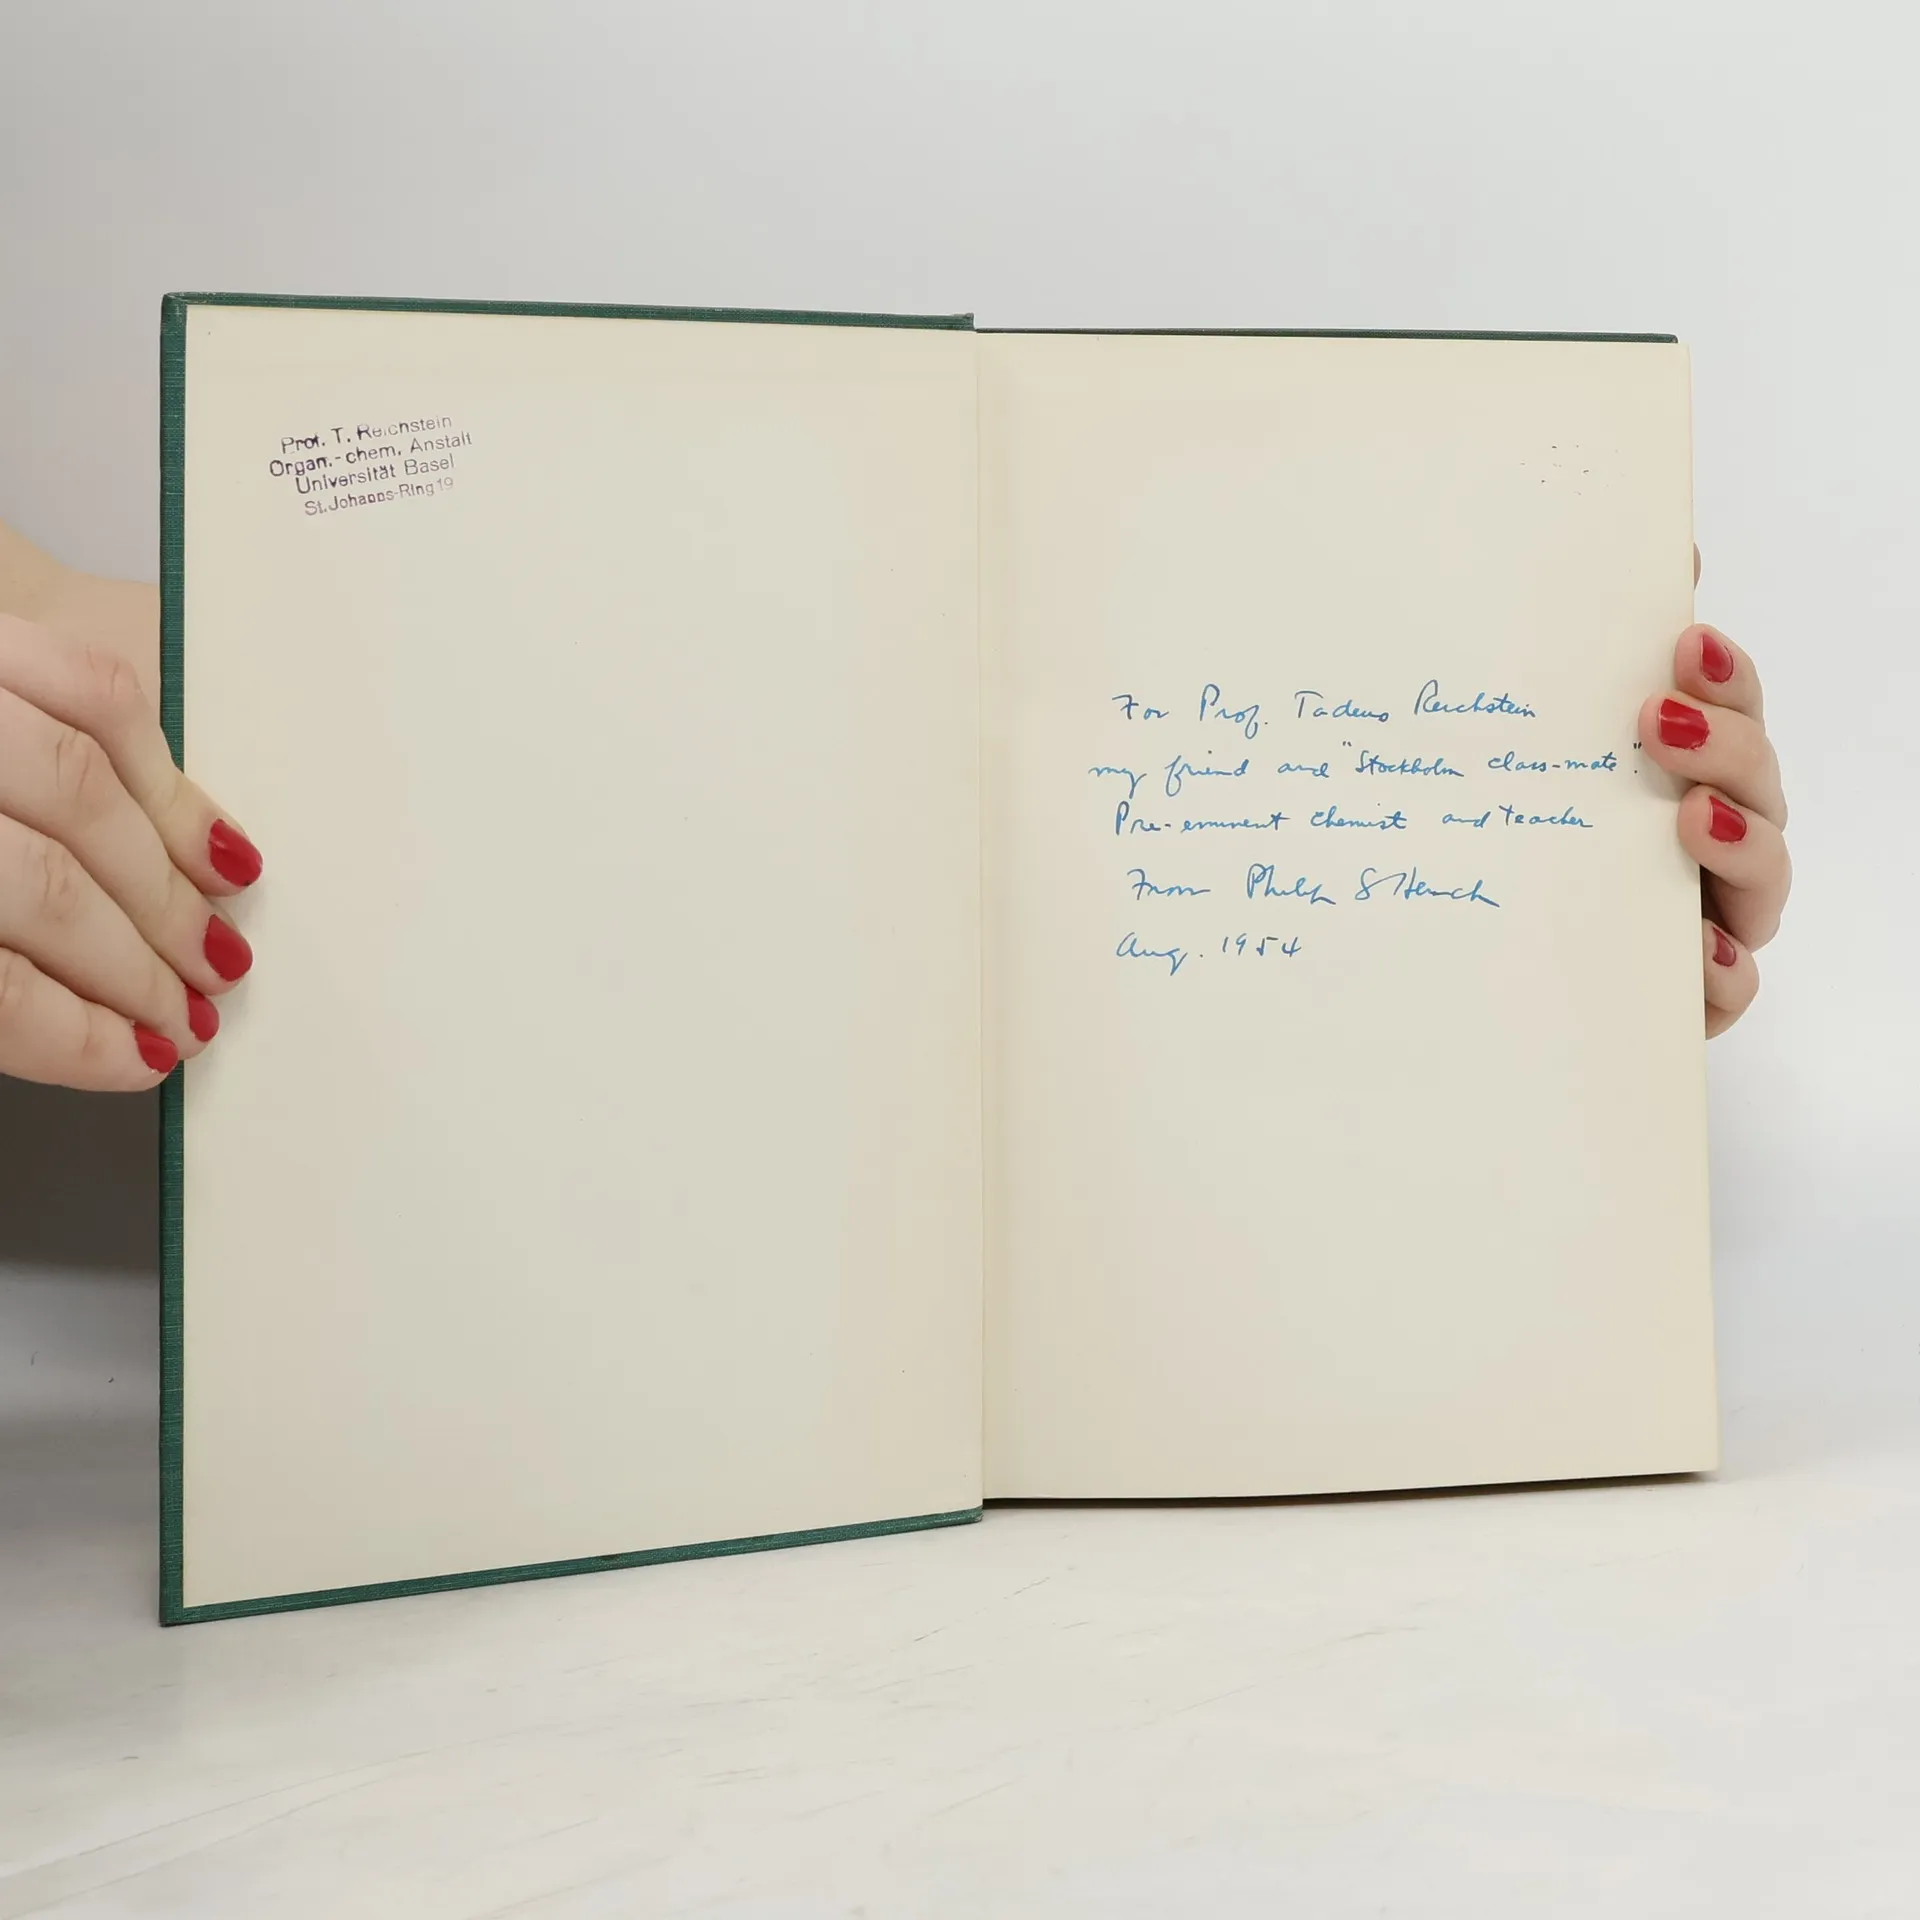 Prof. T. Reichstein
Organ.-chem. Anstalt
Universität Basel
St. Johanns-Ring 19
For Prof. Tadeus Reichstein
my friend and "Stockholm class-mate."
Pre-eminent chemist and teacher
From Philip S Hench
Aug. 1954